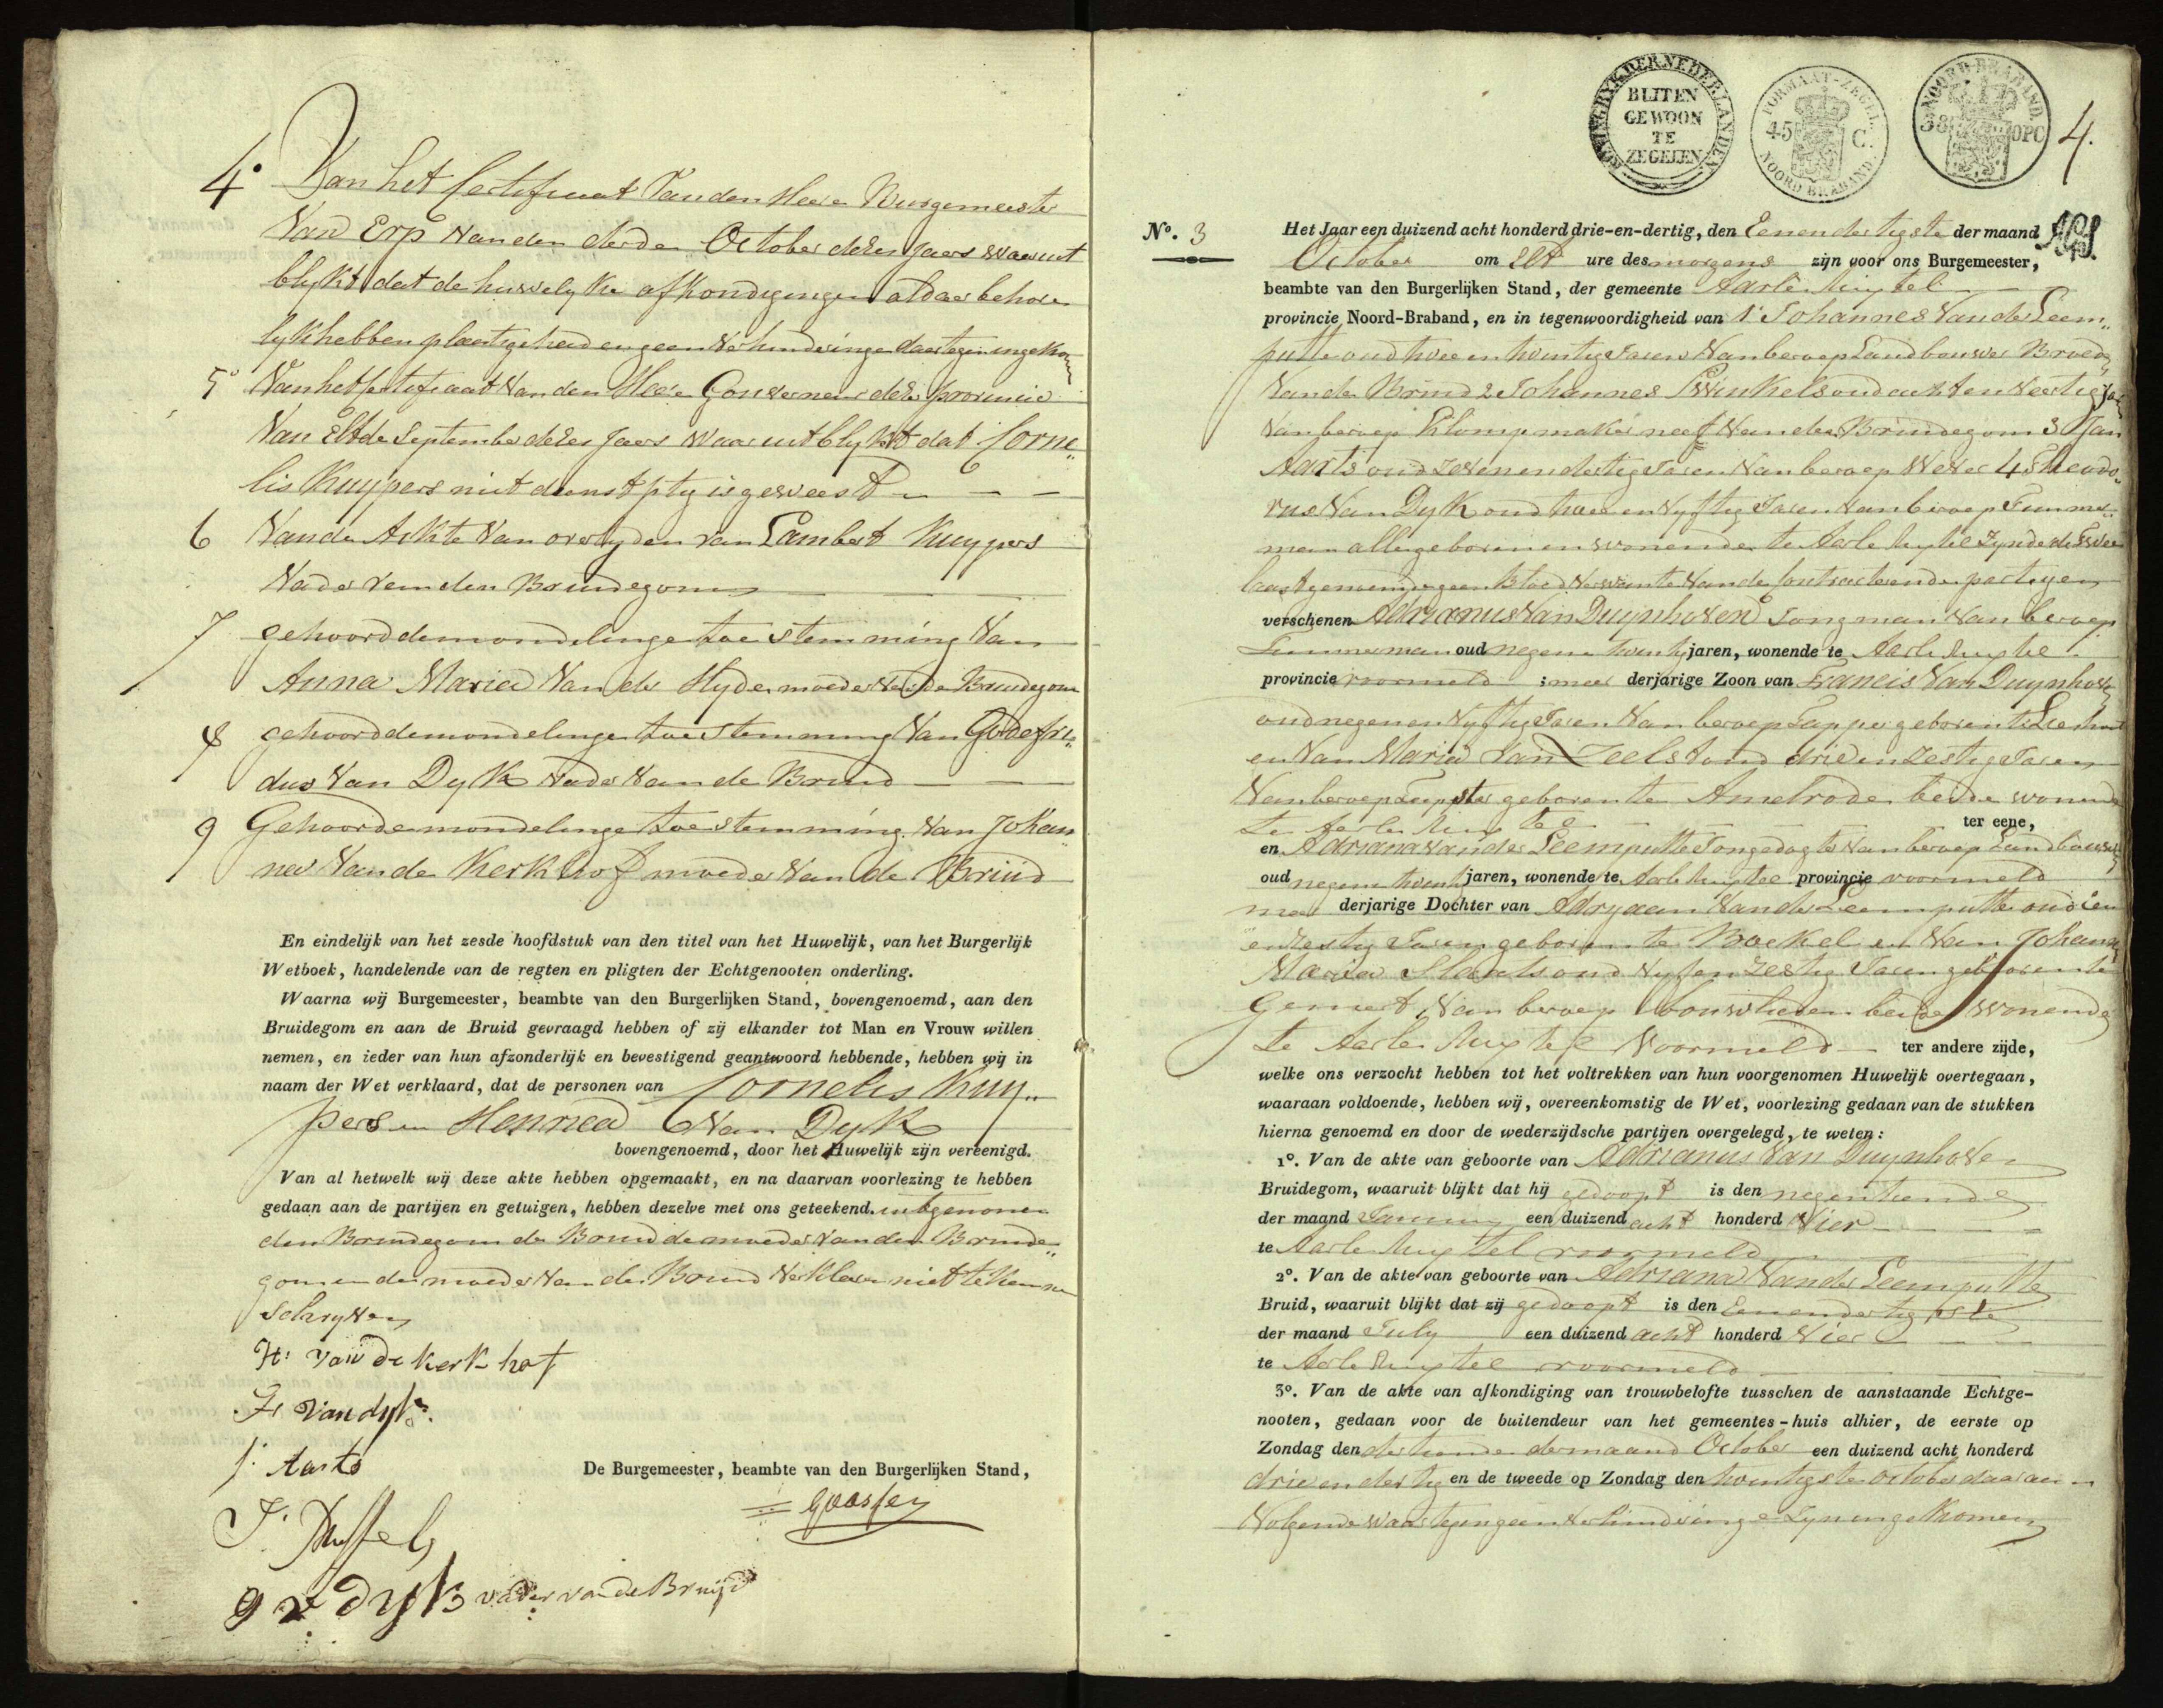 4° Van het Certificaat van den Heere Burgemeester
Van Erp van den derden October dezes Jaers waeruit
blykt dat de huwelyke afkondigingen aldaer behoor
lyk hebben plaets gehad en geen verhinderinge daertegen ingekomen
5° Van het Certificaat van den Heere Gouverneur dezer provincie
Van Elfde September dezes Jaers waar uit blykt dat Corne„
lis Kuypers niet dienstpltg is geweest
6 Van de Ackte van overlyden van Lambert Kuypers
Vader van den Bruidegom
7 gehoord de mondelinge toestemming van
Anna Maria van der Heyde moeder van de Bruidegom
8 gehoord de mondelinge toestemming van Godefri„
dus Van Dyk vader van de Bruid
9 Gehoord de mondelinge toestemming van Johan
na van de Kerkhof moeder van de Bruid
En eindelijk van het zesde hoofdstuk van den titel van het Huwelijk, van het Burgerlijk
Wetboek, handelende van de regten en pligten der Echtgenooten onderling.
Waarna wij Burgemeester, beambte van den Burgerlijken Stand, bovengenoemd, aan den
Bruidegom en aan de Bruid gevraagd hebben of zij elkander tot Man en Vrouw willen
nemen, en ieder van hun afzonderlijk en bevestigend geantwoord hebbende, hebben wij in
naam der Wet verklaard, dat de personen van Cornelis Kuy„
pers en Hennea Van Dyk
bovengenoemd, door het Huwelijk zijn vereenigd.
Van al hetwelk wij deze akte hebben opgemaakt, en na daarvan voorlezing te hebben
gedaan aan de partijen en getuigen, hebben dezelve met ons geteekend. uitgenomen
den Bruidegom de Bruid de moeder van den Bruide„
gom en de moeder van de Bruid verklaren niet te kunnen
Schryven
H: van de kerk hof
van dyk
J: Aarts
De Burgemeester, beambte van den Burgerlijken Stand,
Goossen
g v dyk vader van de Bruijd
KONINGRYK DER NEDERLANDEN
BUITEN
GEWOON
TE
ZEGELEN
FORMAAT-ZEGEL.
45 C.
NOORD BRABAND.
NOORD-BRABAND.
38 OPC
4.
N°. 3
Het Jaar een duizend acht honderd drie-en-dertig, den Eenendertigste der maand
October om Elf ure des morgens zijn voor ons Burgemeester,
beambte van den Burgerlijken Stand, der gemeente Aarle Rixtel
provincie Noord-Braband, en in tegenwoordigheid van 1° Johannes Van der Leem„
putte oud twee en twintig Jaren van beroep Landbouwer Broeder
Van de Bruid 2 Johannes Swinkels oud acht en veertig Jaren
van beroep Klompmaker neef van den Bruidegom 3 Jan
Aarts oud zevenendertig Jaren van beroep Wever 4 Theodo„
rus Van Dyk oud twee en vyftig Jaren van beroep Timmer„
man alle geboren en wonende te Aarle Rixtel zynde de twee
laast genoemde geen bloedverwante van de contracterende partyen
verschenen Adrianus Van Duynhoven Jongman van beroep
Timmerman oud negenen twintig jaren, wonende te Aarle Rixtel
provincie voormeld ; meerderjarige Zoon van Francis Van Duynhoven
oud negen en vyftig Jaren van beroep Tapper geboren te Lieshout
en van Maria Van Zeelst oud drie en zestig Jaren
van beroep Tapster geboren te Amelrode beide wonende
te Aarle Rixtel ter eene,
en Adriana van der Leemputte Jongedogter van beroep Landbouwster
oud negenen twintig jaren, wonende te Aarle Rixtel provincie voormeld
meer derjarige Dochter van Adryaan Van der Leemputte oud een
en zestig Jaren geboren te Boekel en van Johanna
Maria oud vyf en zestig Jaren geboren te
Gemert van beroep bouwlieden beide wonende
te Aarle Rixtel voormeld ter andere zijde,
welke ons verzocht hebben tot het voltrekken van hun voorgenomen Huwelijk overtegaan,
waaraan voldoende, hebben wij, overeenkomstig de Wet, voorlezing gedaan van de stukken
hierna genoemd en door de wederzijdsche partijen overgelegd, te weten:
1°. Van de akte van geboorte van Adrianus Van Duynhoven
Bruidegom, waaruit blijkt dat hij gedoopt is den negentiende
der maand January een duizend acht honderd Vier
te Aarle Rixtel voormeld
2°. Van de akte van geboorte van Adriana Van der Leemputte
Bruid, waaruit blijkt dat zij gedoopt is den Eenendertigste
der maand July een duizend acht honderd Vier
te Aarle Rixtel voormeld
3°. Van de akte van afkondiging van trouwbelofte tusschen de aanstaande Echtge-
nooten, gedaan voor de buitendeur van het gemeentes-huis alhier, de eerste op
Zondag den dertiende der maand October een duizend acht honderd
drie en dertig en de tweede op Zondag den twintigste october daaraan
Volgende waartegen geen verhindringe zyn ingekomen